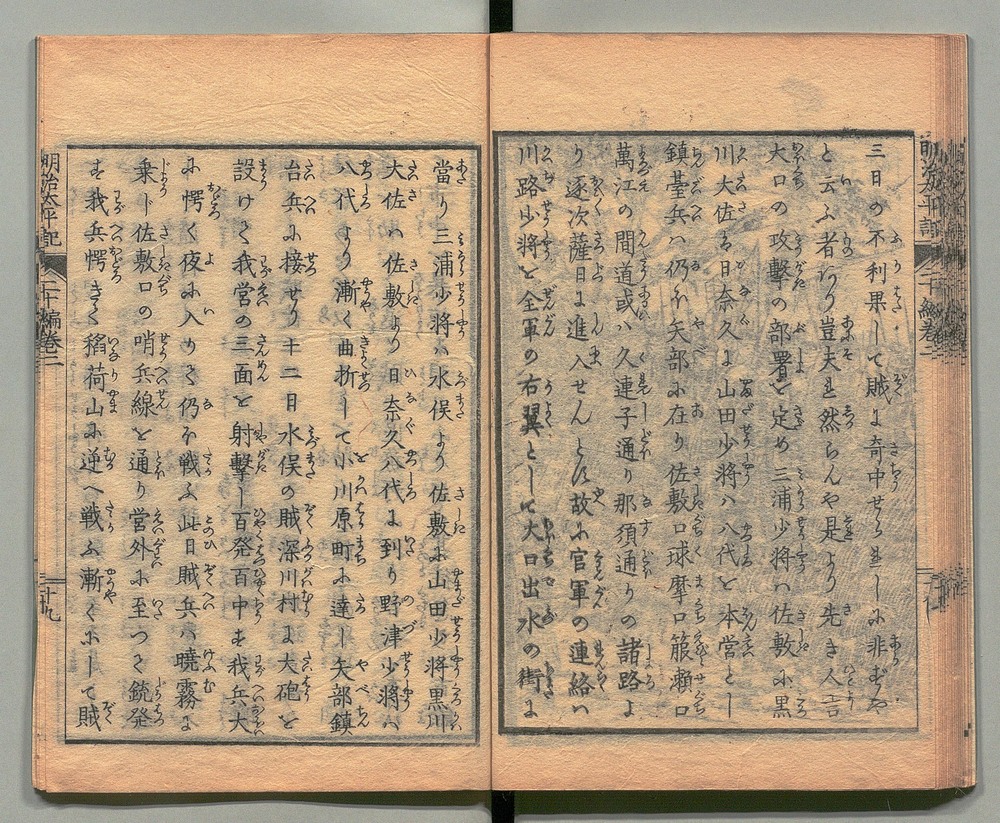 三日の不利果して賊に奇中せられしに非ずや
と云ふ者あり豈夫れ然らんや是より先き人言
大口の攻撃の部署を定め三浦少将ハ佐敷に黒
川大佐ハ日奈久に山田少将ハ八代を本営とし
鎮臺兵ハ仍ほ矢部に在り佐敷口球摩口服瀬口
萬江の間道或ハ久連子通り那須通りの諸路よ
り逐次薩日に進入せんとす故に官軍の連絡ハ
川路少将を全軍の右翼として大口出水の街に
當り三浦少将ハ水俣より佐敷に山田少将黒川
大佐ハ佐敷より日奈久八代に到り野津少将ハ
八代より漸く曲折して小川原町に達し矢部鎮
台兵に接せり十二日水俣の賊深川村に大砲を
設けて我営の三面を射撃し百発百中す我兵大
に愕く夜に入りて仍ほ戦ふ此日賊兵ハ暁霧に
乗じ佐敷口の哨兵線を通り営外に至つて銃発
す我兵愕きて稲荷山に逆へ戦ふ漸くにして賊
明治太平記
二十編巻二
二十九